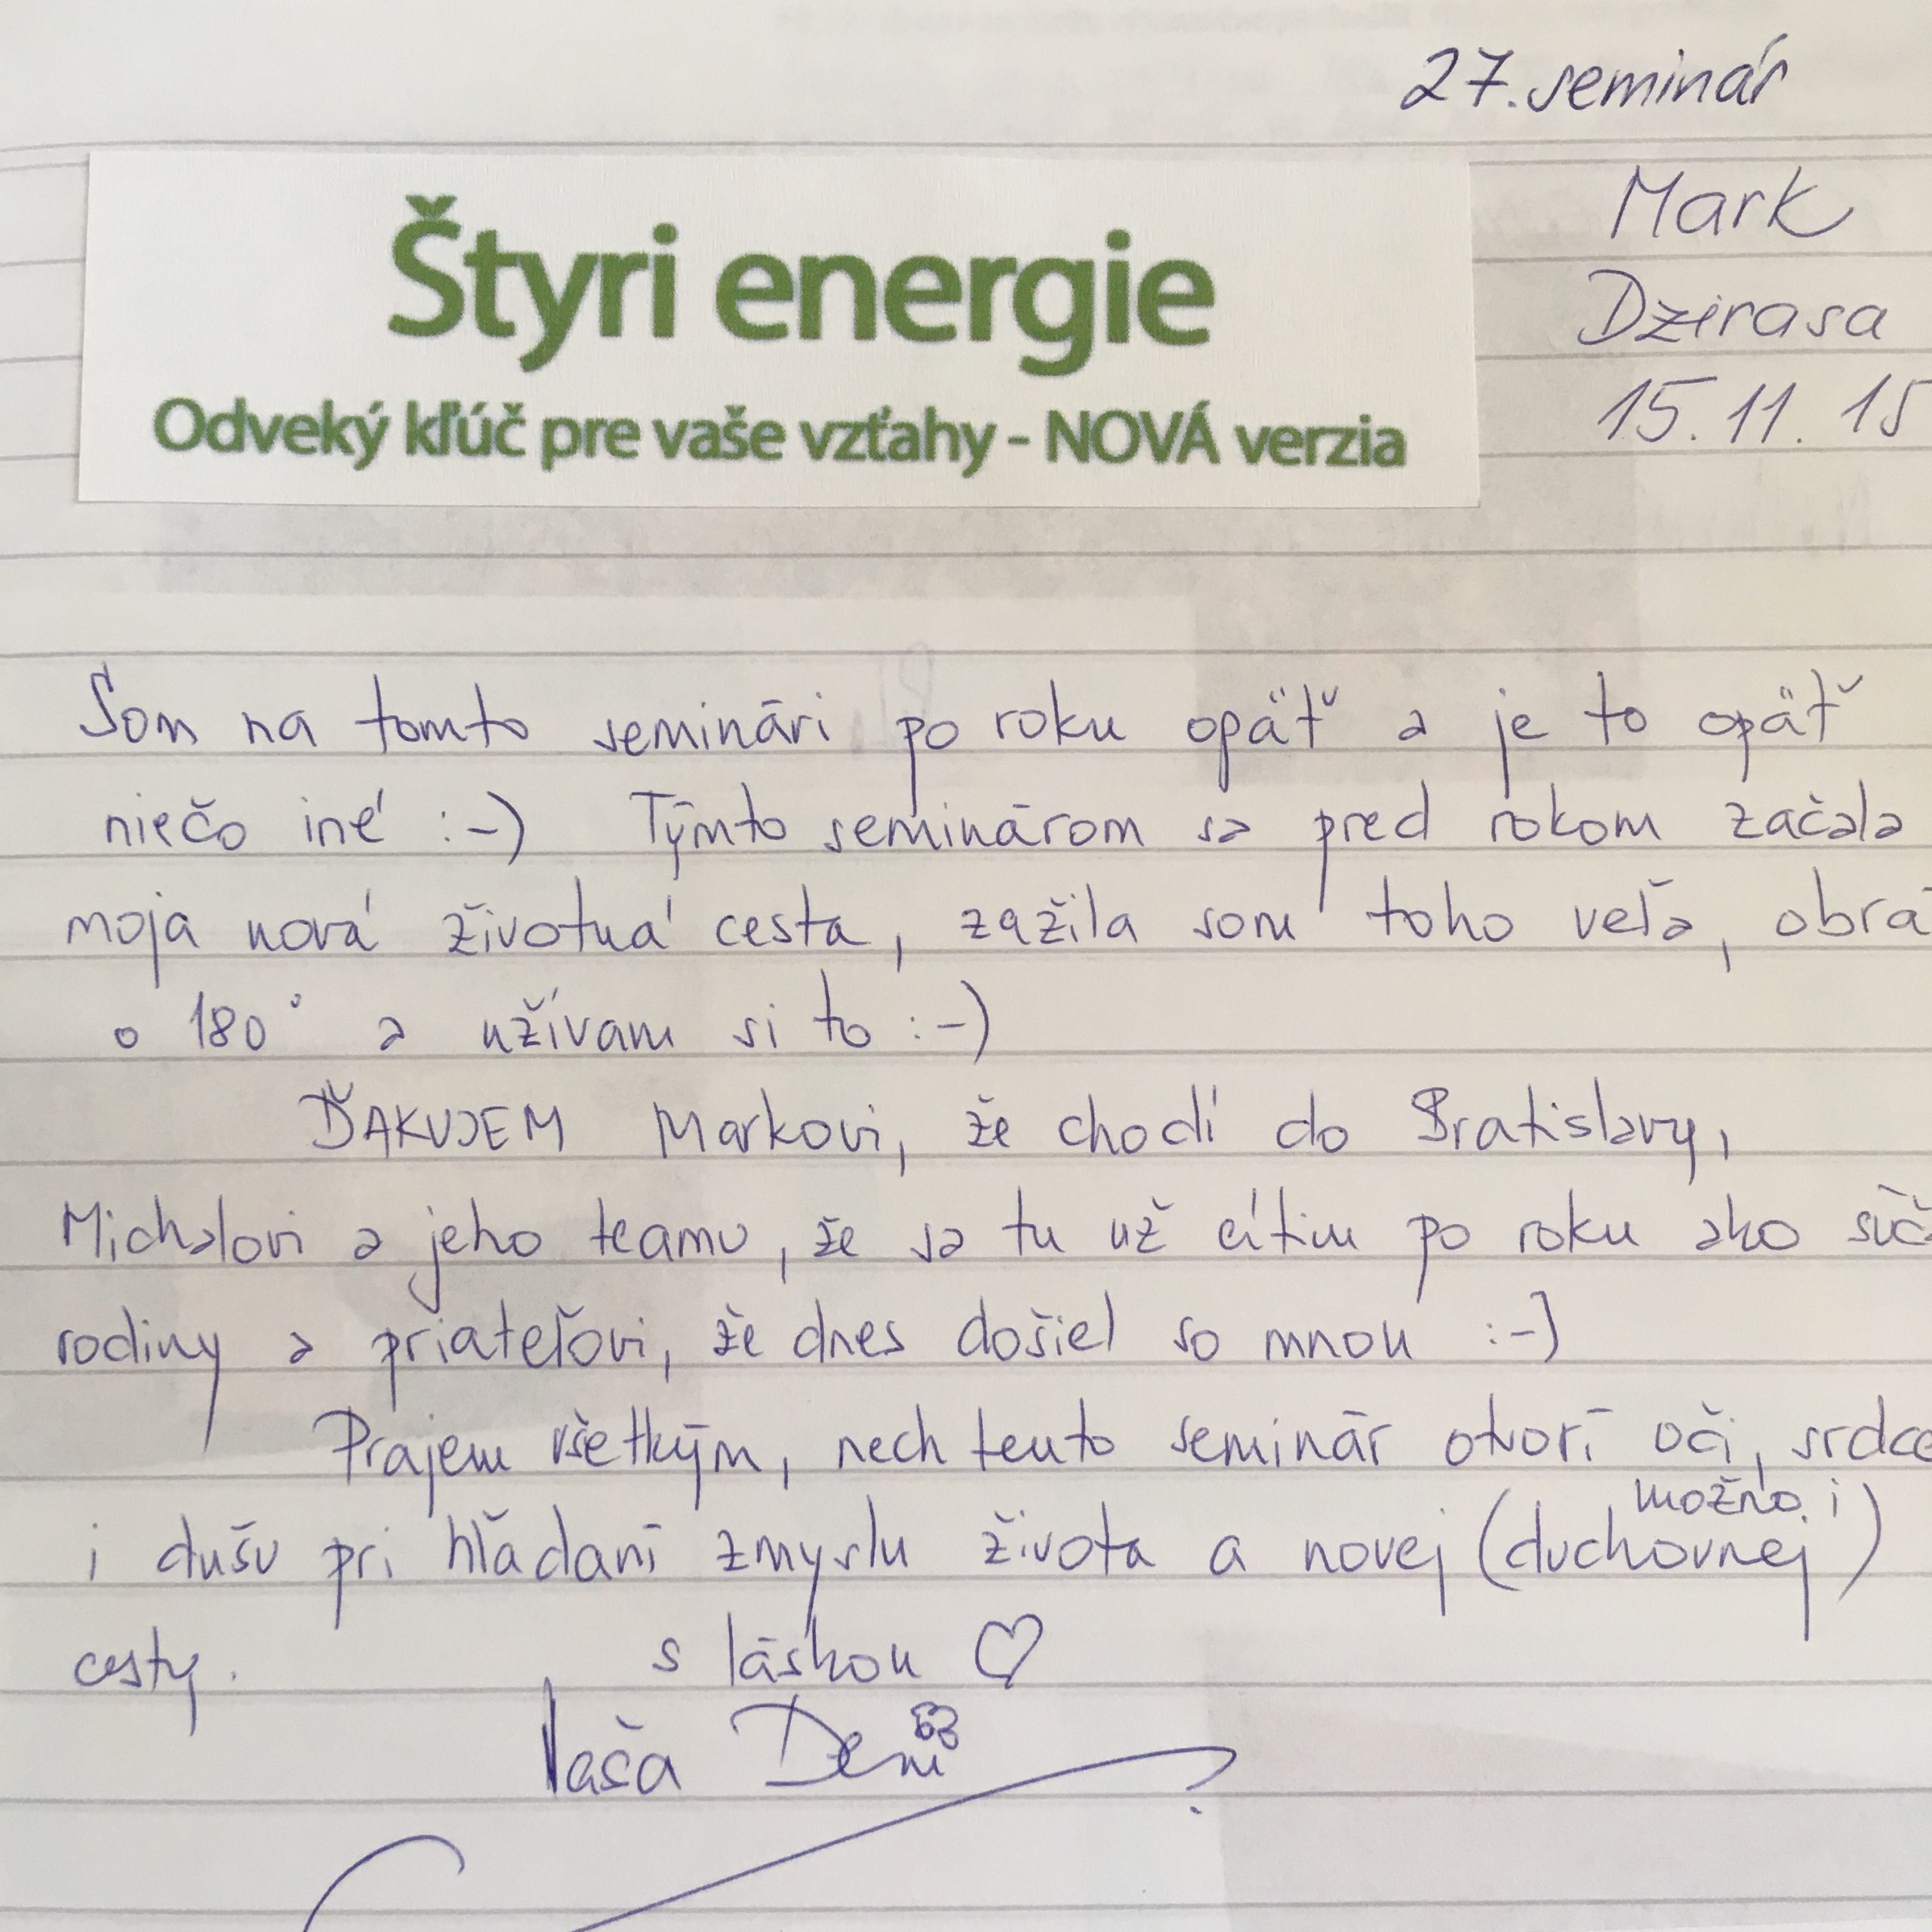 27. seminár
Štyri energie
Odveký kľúč pre vaše vzťahy - NOVÁ verzia
Mark
Dzirasa
15.11.15
Som na tomto seminári po roku opäť a je to opäť
niečo iné :-) Týmto seminárom sa pred rokom začala
moja nová životná cesta, zažila som toho veľa,
o 180° a užívam si to :-)
ĎAKUJEM Markovi, že chodí do Bratislavy,
Michalovi a jeho teamu, že sa tu už cítim po roku ako
rodiny a priateľovi, že dnes došiel so mnou :-)
Prajem všetkým, nech tento seminár otvorí oči, srdce
možno i
i dušu pri hľadaní zmyslu života a novej (duchovnej)
cesty. s láskou ♡
Vaša Deni